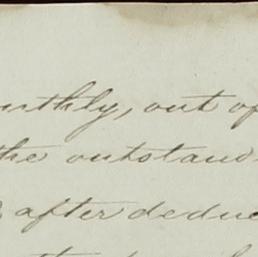 onthly, out of
the outstand
after deduc